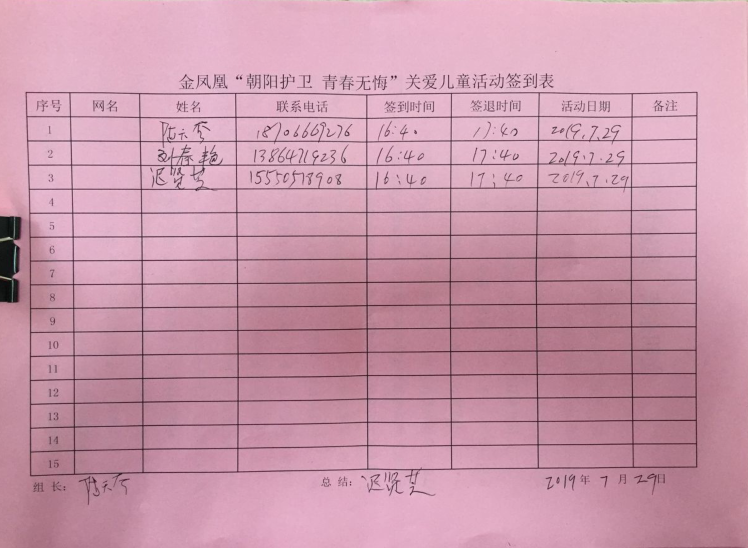 金凤凰“朝阳护卫 青春无悔”关爱儿童活动签到表
序号 网名 姓名 联系电话 签到时间 签退时间 活动日期 备注
1 18706669276 16:40 17:40 2019.7.29
2 刘春艳 13864719236 16:40 17:40 2019.7.29
3 迟贤芝 15550518908 16:40 17:40 2019.7.29
4
5
6
7
8
9
10
11
12
13
14
15
组长： 总结：迟贤芝 2019年7月29日